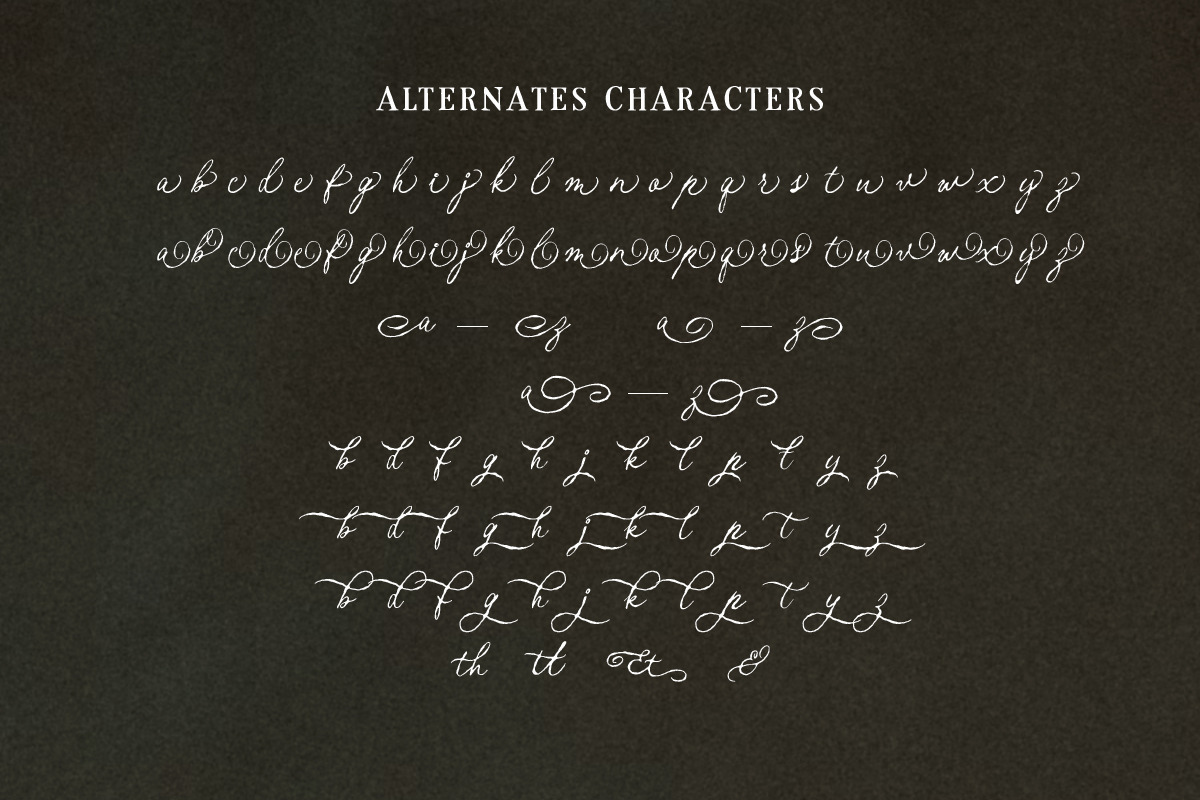 ALTERNATES CHARACTERS
a b c d e f g h i j k l m n o p q r s t u v w x y z
a b c d e f g h i j k l m n o p q r s t u v w x y z
a — z a — z
a — z
b d f g h j k l p t y z
b d f g h j k l p t y z
b d f g h j k l p t y z
th tt Et &